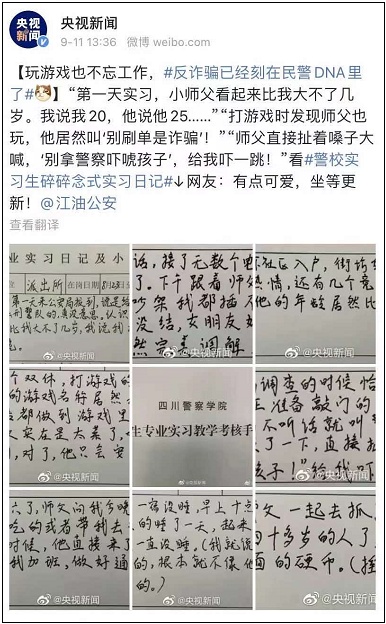 央视新闻
央视新闻
9-11 13:36 微博 weibo.com
【玩游戏也不忘工作，#反诈骗已经刻在民警DNA里
了#】“第一天实习，小师父看起来比我大不了几
岁。我说我20，他说他25……”“打游戏时发现师父也
玩，他居然叫‘别刷单是诈骗’！”“师父直接扯着嗓子大
喊，‘别拿警察吓唬孩子’，给我吓一跳！”看#警校实
习生碎碎念式实习日记#↓网友：有点可爱，坐等更
新！@江油公安
查看翻译
业实习日记及小
派出所
在岗日期
第一天来公安局报到，说是给
比我大不了几岁，我说我
@央视新闻
话，接了无数个电
了。下午跟着师
吵架我都插不
没结，女朋友如
然完美调解
@央视新闻
社区入户，街坊
热情，还有几个竟
他的年龄居然比
@央视新闻
个双休，打游戏的
的游戏名字居然
都做到游戏里
文实在是太差了，
，对了，他只会安
@央视新闻
四川警察学院
生专业实习教学考核手
@央视新闻
调查的时候恰
正准备敲门的
不听话就叫
了一下，直接扯
孩子！”给我吓
@央视新闻
六了，师父问我今晚
吃的或者带我去
时候，他直接来了
我加班，做好通
@央视新闻
一宿没睡，早上十点
的睡了一天，起来
一直没睡。（我就说
的，根本就不像他
的。）
@央视新闻
父一起去抓
四十多岁的人了
面的硬币。（挂
@央视新闻